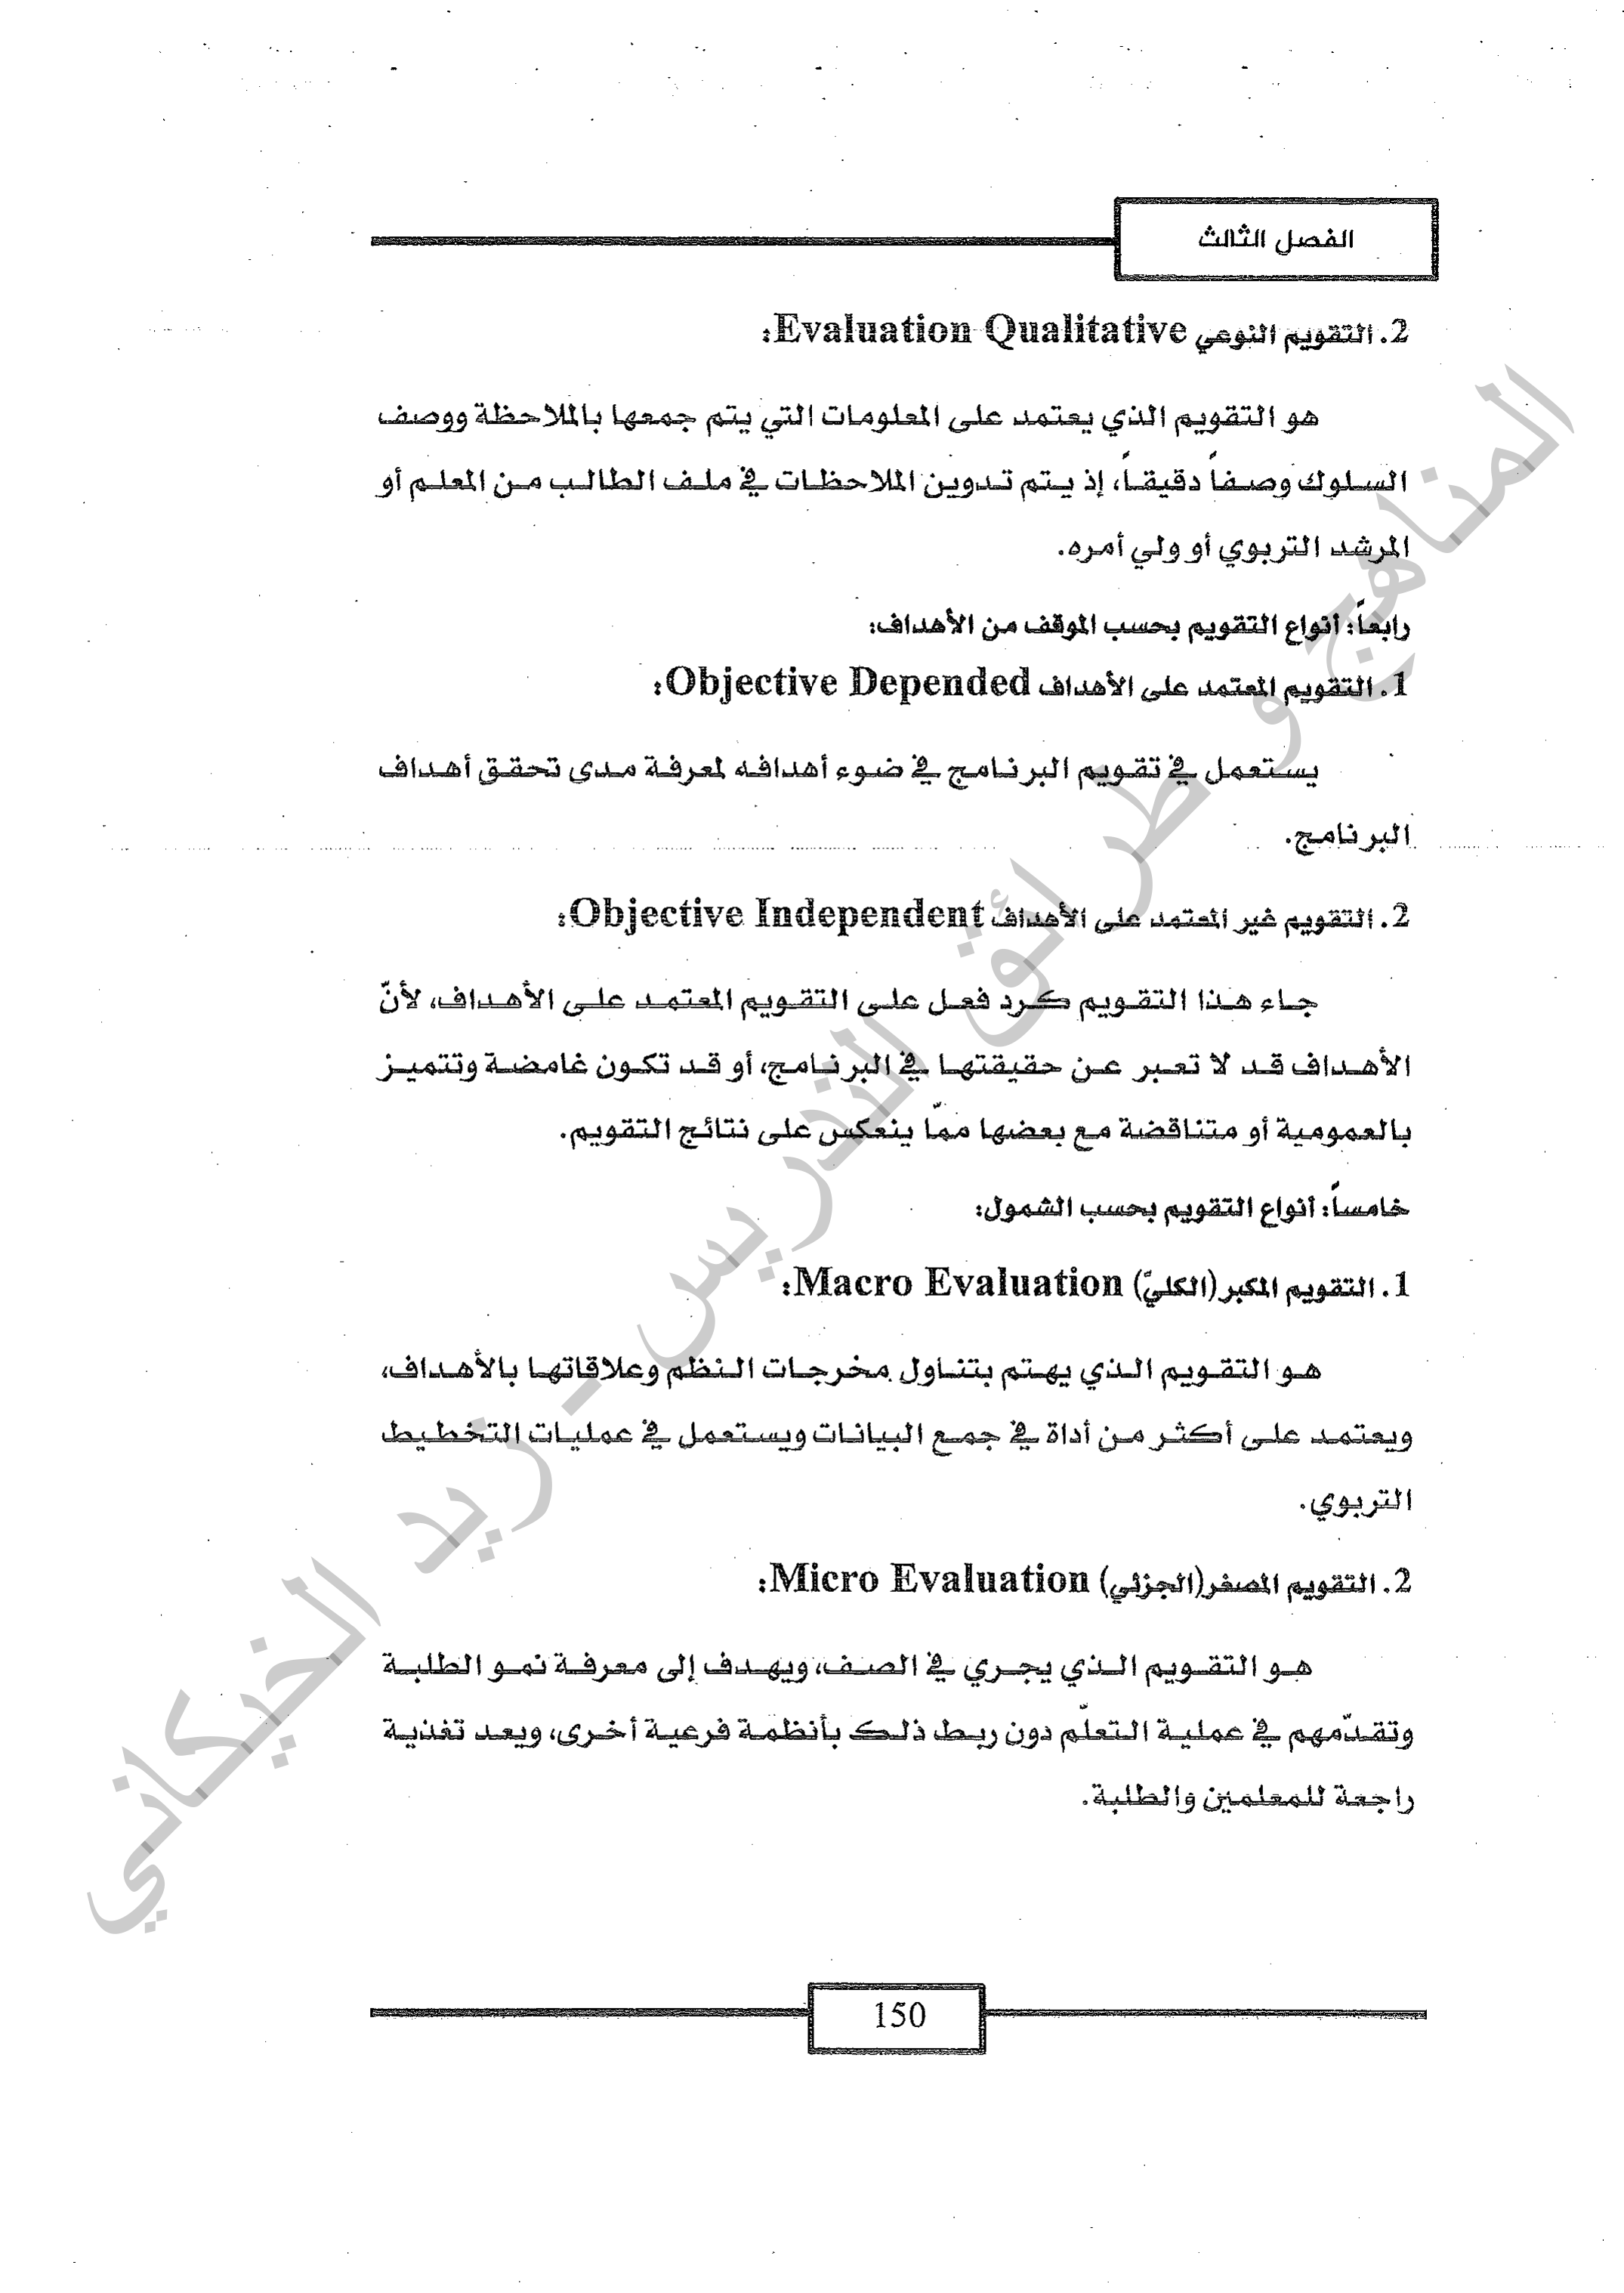 الفصل الثالث
2. التقويم النوعي Evaluation Qualitative:
هو التقويم الذي يعتمد على المعلومات التي يتم جمعها بالملاحظة ووصف
السلوك وصفاً دقيقاً، إذ يتم تدوين الملاحظات في ملف الطالب من المعلم أو
المرشد التربوي أو ولي أمره.
رابعاً: أنواع التقويم بحسب الموقف من الأهداف:
1. التقويم المعتمد على الأهداف Objective Depended:
يستعمل في تقويم البرنامج في ضوء أهدافه لمعرفة مدى تحقق أهداف
البرنامج.
2. التقويم غير المعتمد على الأهداف Objective Independent:
جاء هذا التقويم كرد فعل على التقويم المعتمد على الأهداف، لأنّ
الأهداف قد لا تعبر عن حقيقتها في البرنامج، أو قد تكون غامضة وتتميز
بالعمومية أو متناقضة مع بعضها ممّا ينعكس على نتائج التقويم.
خامساً: أنواع التقويم بحسب الشمول:
1. التقويم المكبر (الكليّ) Macro Evaluation:
هو التقويم الذي يهتم بتناول مخرجات النظم وعلاقاتها بالأهداف،
ويعتمد على أكثر من أداة في جمع البيانات ويستعمل في عمليات التخطيط
التربوي.
2. التقويم المصغر (الجزئي) Micro Evaluation:
هو التقويم الذي يجري في الصف، ويهدف إلى معرفة نمو الطلبة
وتقدّمهم في عملية التعلّم دون ربط ذلك بأنظمة فرعية أخرى، ويعد تغذية
راجعة للمعلمين والطلبة.
150
المناهج و طرائق التدريس - زيد الخيكاني